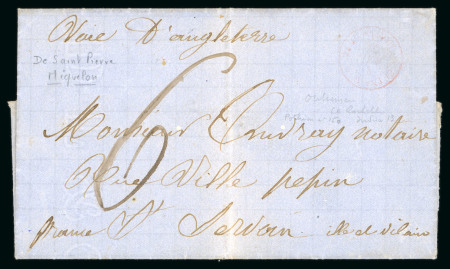 Voie D'angleterre
De Saint Pierre
Miquelon
6
Monsieur notaire
Rue Ville pepin
France St Servan Ille et Vilaine